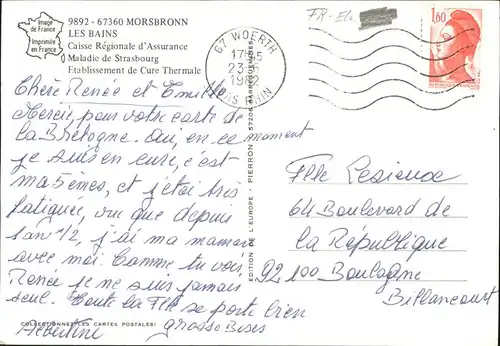 Image
de France
Imprimée
en France
9892 - 67360 MORSBRONN
LES BAINS
Caisse Régionale d'Assurance
Maladie de Strasbourg
Etablissement de Cure Thermale
67 WOERTH
BAS RHIN
FR-EL
1,60
Chère Renée et Emitte
Merci, pour votre carte de
la Bretagne. Oui, en ce moment
je suis en cure, c'est
ma 5èmes, et j'étai très
fatiguée, vu que depuis
1 an 1/2, j'ai ma maman
avec moi. Comme tu vois
Renée je ne suis jamais
seul. Toute la Flle se porte bien
grosse Bises
Albertine
COLLECTIONNEZ LES CARTES POSTALES!
EDITION D'ART DE L'EUROPE - PIERRON - 57206 SARREGUEMINES
Flle Lesieux
64 Boulevard de
la République
92100 Boulogne
Billancourt